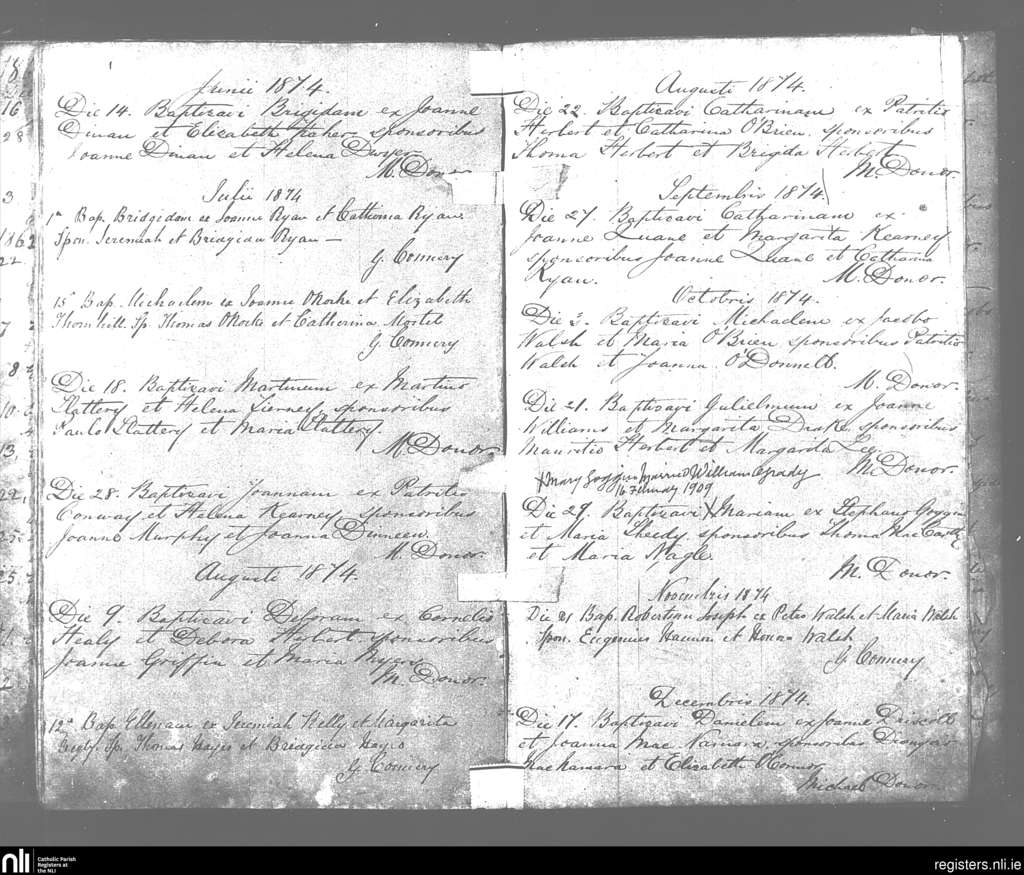 Junii 1874.
Die 14. Baptizavi Brigidam ex Joanne
Dinan et Elizabeth Maher sponsoribus
Joanne Dinan et Helena Dwyer
M. Donor
Julii 1874
1a Bap. Bridgidam ex Joanne Ryan et Catherina Ryan
Spon. Jeremiah et Bridgida Ryan —
G. Connery
15a Bap. Michaelem ex Joanne ORorke et Elizabeth
Thornhill. Sp. Thomas ORorke et Catherina
G. Connery
Die 18. Baptizavi Martinum ex Martino
Slattery et Helena Tierney, sponsoribus
Paulo Slattery et Maria Slattery
M. Donor
Die 28. Baptizavi Joannam ex Patritio
Conway et Helena Kearney sponsoribus
Joanne Murphy et Joanna Dinneen.
M. Donor.
Augusti 1874.
Die 9. Baptizavi Deboram ex Cornelio
Healy et Debora Herbert sponsoribus
Joanne Griffin et Maria
M. Donor.
12a Bap. Ellenam ex Jeremiah Kelly et Margarita
Sp. Thomas Hayes et Bridgida Hayes
G. Connery
Augusti 1874.
Die 22. Baptizavi Catharinam ex Patritio
Herbert et Catharina O'Brien, sponsoribus
Thoma Herbert et Brigida Herbert
M. Donor.
Septembris 1874
Die 27. Baptizavi Catharinam ex
Joanne Quane et Margarita Kearney
sponsoribus Joanne Quane et Catharina
Ryan. M. Donor.
Octobris 1874.
Die 3. Baptizavi Michaelem ex Jacobo
Walsh et Maria O'Brien, sponsoribus Patritio
Walsh et Joanna O'Donnell.
M. Donor.
Die 21. Baptizavi Gulielmum ex Joanne
Williams et Margarita Drake sponsoribus
Mauritio Herbert et Margarita
M. Donor.
x Mary Goggin married William Grady
16 February 1909
Die 29. Baptizavi x Mariam ex Stephano Goggin
et Maria Sheedy, sponsoribus Thoma MacCarthy
et Maria Nagle.
M. Donor.
Novembris 1874
Die 21 Bap. Robertum Joseph ex Peter Walsh et Maria Walsh
Spon. Eugenius Hannon et Honora Walsh
G. Connery
Decembris 1874.
Die 17. Baptizavi Danielem ex Joanne Driscoll
et Joanna MacNamara, sponsoribus Dionysio
MacNamara et Elizabeth O'Connor
Michael Donor.
nli
Catholic Parish
Registers at
the NLI
registers.nli.ie